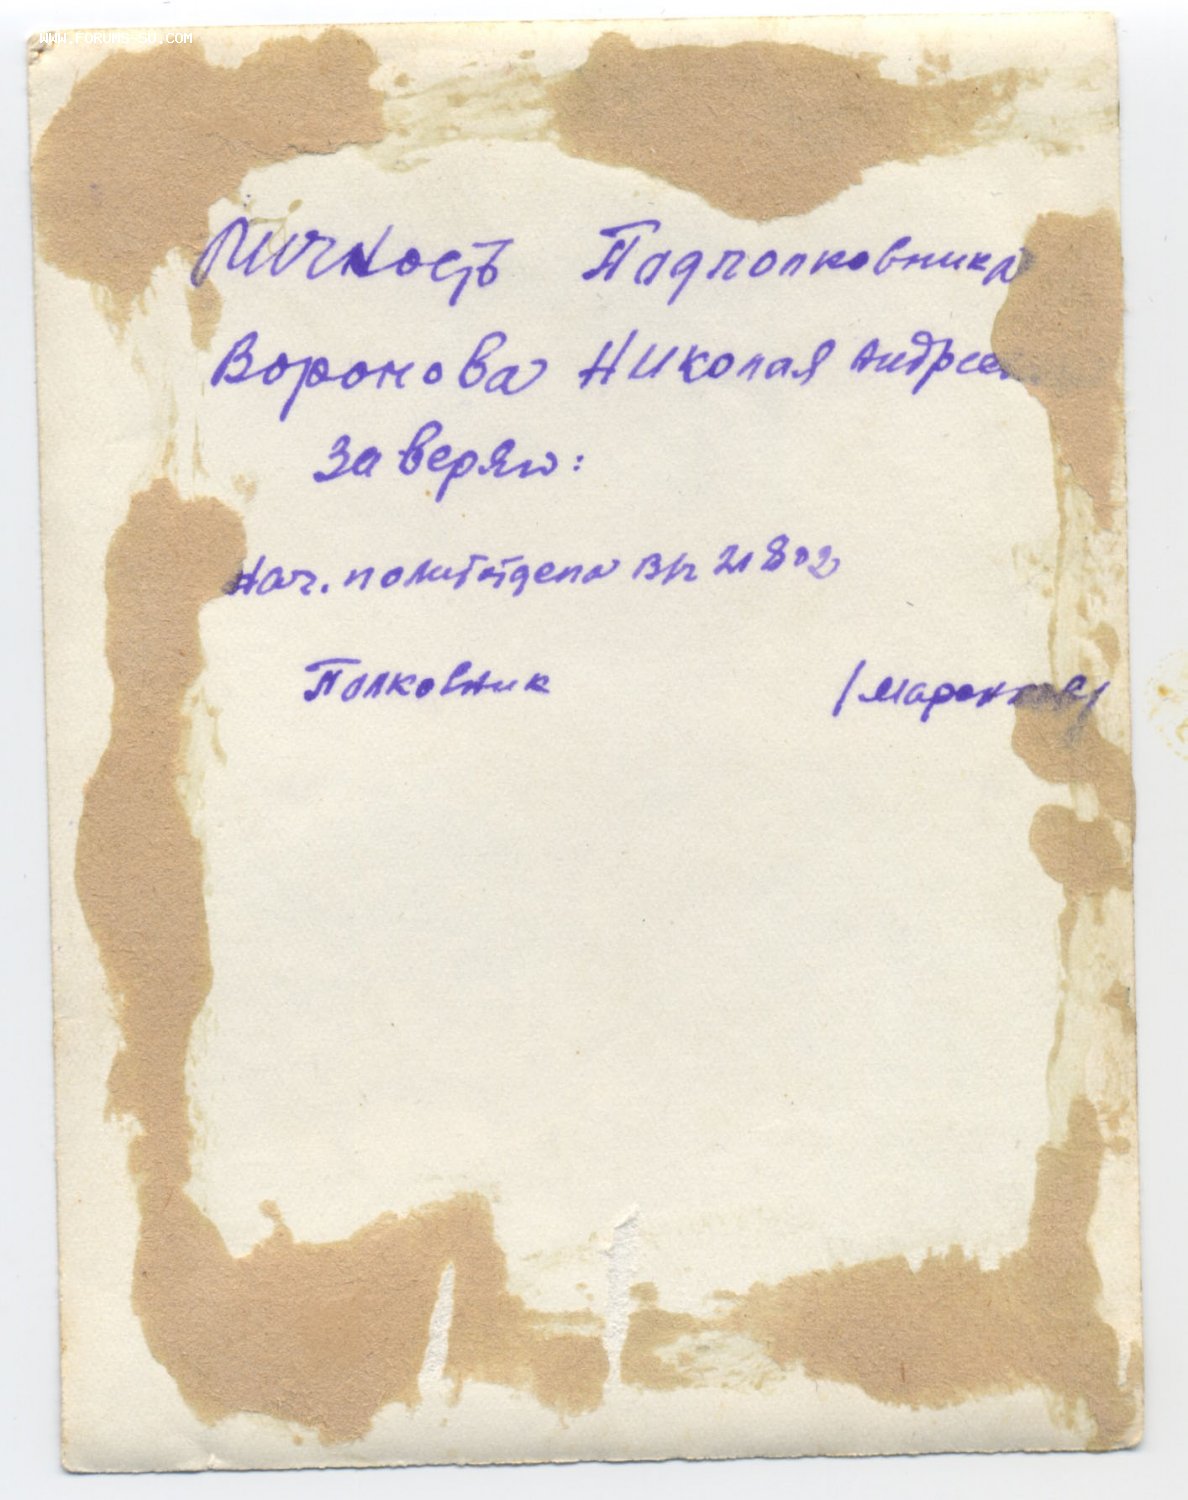 WWW.FORUMSSU.COM
Личность Подполковника
Воронова Николая
Заверяю:
Нач. политотдела в/ч 21802
Полковник